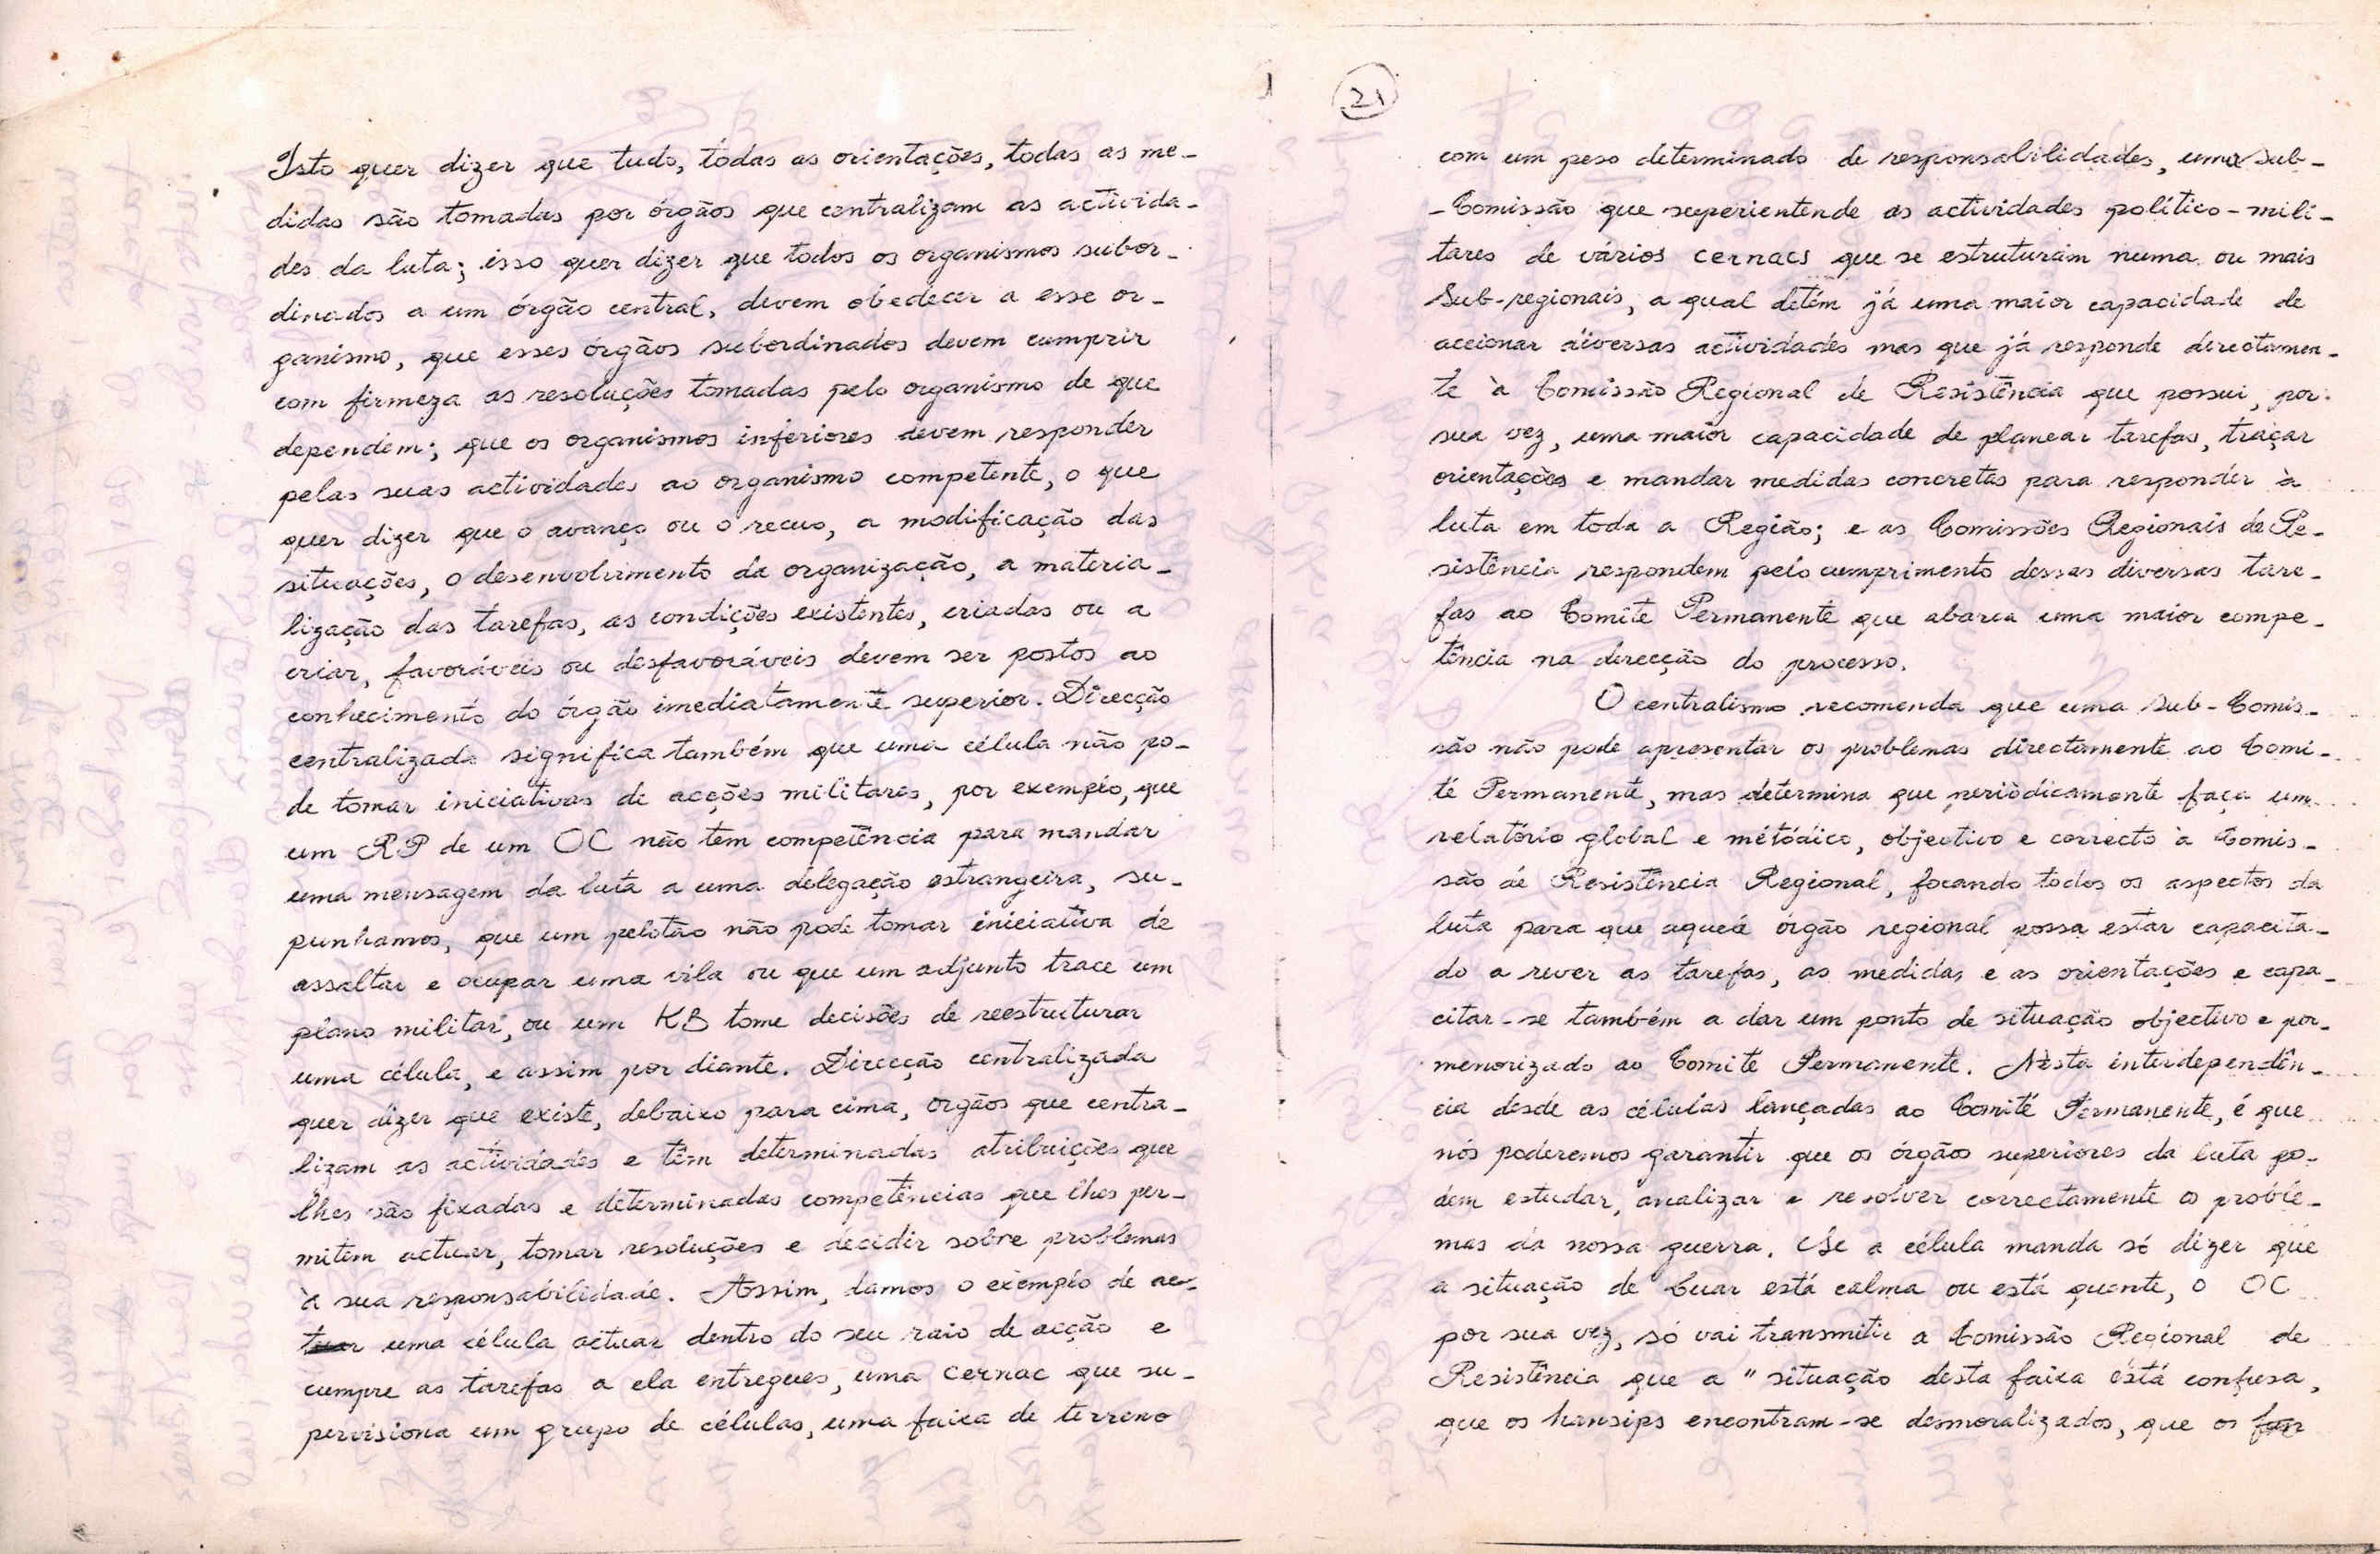 Isto quer dizer que tudo, todas as orientações, todas as me-
didas são tomadas por órgãos que centralizam as activida-
des da luta; isso quer dizer que todos os organismos subor-
dinados a um órgão central, devem obedecer a esse or-
ganismo, que esses órgãos subordinados devem cumprir
com firmeza as resoluções tomadas pelo organismo de que
dependem; que os organismos inferiores devem responder
pelas suas actividades ao organismo competente, o que
quer dizer que o avanço ou o recuo, a modificação das
situações, o desenvolvimento da organização, a materia-
lização das tarefas, as condições existentes, criadas ou a
criar, favoráveis ou desfavoráveis devem ser postos ao
conhecimento do órgão imediatamente superior. Direcção
centralizada significa também que uma célula não po-
de tomar iniciativas de acções militares, por exemplo, que
um RP de um OC não tem competência para mandar
uma mensagem da luta a uma delegação estrangeira, su-
punhamos, que um pelotão não pode tomar iniciativa de
assaltar e ocupar uma vila ou que um adjunto trace um
plano militar, ou um KB tome decisões de reestruturar
uma célula, e assim por diante. Direcção centralizada
quer dizer que existe, debaixo para cima, orgãos que centra-
lizam as actividades e têm determinadas atribuições que
lhes são fixadas e determinadas competências que lhes per-
mitem actuar, tomar resoluções e decidir sobre problemas
à sua responsabilidade. Assim, damos o exemplo de ac-
tuar uma célula actuar dentro do seu raio de acção e
cumpre as tarefas a ela entregues, uma cernac que su-
pervisiona um grupo de células, uma faixa de terreno
21
com um peso determinado de responsabilidades, uma sub-
-Comissão que superientende as actividades político-mili-
tares de vários cernacs que se estruturam numa ou mais
Sub-regionais, a qual detém já uma maior capacidade de
accionar diversas actividades mas que já responde directamen-
te à Comissão Regional de Resistência que possui, por
sua vez, uma maior capacidade de planear tarefas, traçar
orientações e mandar medidas concretas para responder à
luta em toda a Região; e as Comissões Regionais de Re-
sistência respondem pelo cumprimento dessas diversas tare-
fas ao Comité Permanente que abarca uma maior compe-
tência na direcção do processo.
O centralismo recomenda que uma Sub-Comis-
são não pode apresentar os problemas directamente ao Comi-
té Permanente, mas determina que periòdicamente faça um
relatório global e métódico, objectivo e correcto à Comis-
são de Resistência Regional, focando todos os aspectos da
luta para que aquele órgão regional possa estar capacita-
do a rever as tarefas, as medidas e as orientações e capa-
citar-se também a dar um ponto de situação objectivo e por-
menorizado ao Comité Permanente. Nesta interdependên-
cia desde as células lançadas ao Comité Permanente, é que
nós poderemos garantir que os órgãos superiores da luta po-
dem estudar, analizar e resolver correctamente os proble-
mas da nossa guerra. Se a célula manda só dizer que
a situação de Cuar está calma ou está quente, o OC
por sua vez, só vai transmitir a Comissão Regional de
Resistência que a "situação desta faixa está confusa,
que os hansips encontram-se desmoralizados, que os